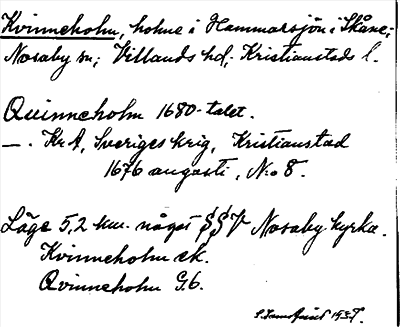 Kvinneholm, holme i Hammarsjön i Skåne;
Nosaby sn; Villands hd; Kristianstads l.
Quinneholm 1680-talet.
—. KrA, Sveriges krig, Kristianstad
1676 augusti, N:o 8.
Läge 5,2 km. något S§V Nosaby kyrka.
Kvinneholm ek.
Qvinneholm G.6.
1937.